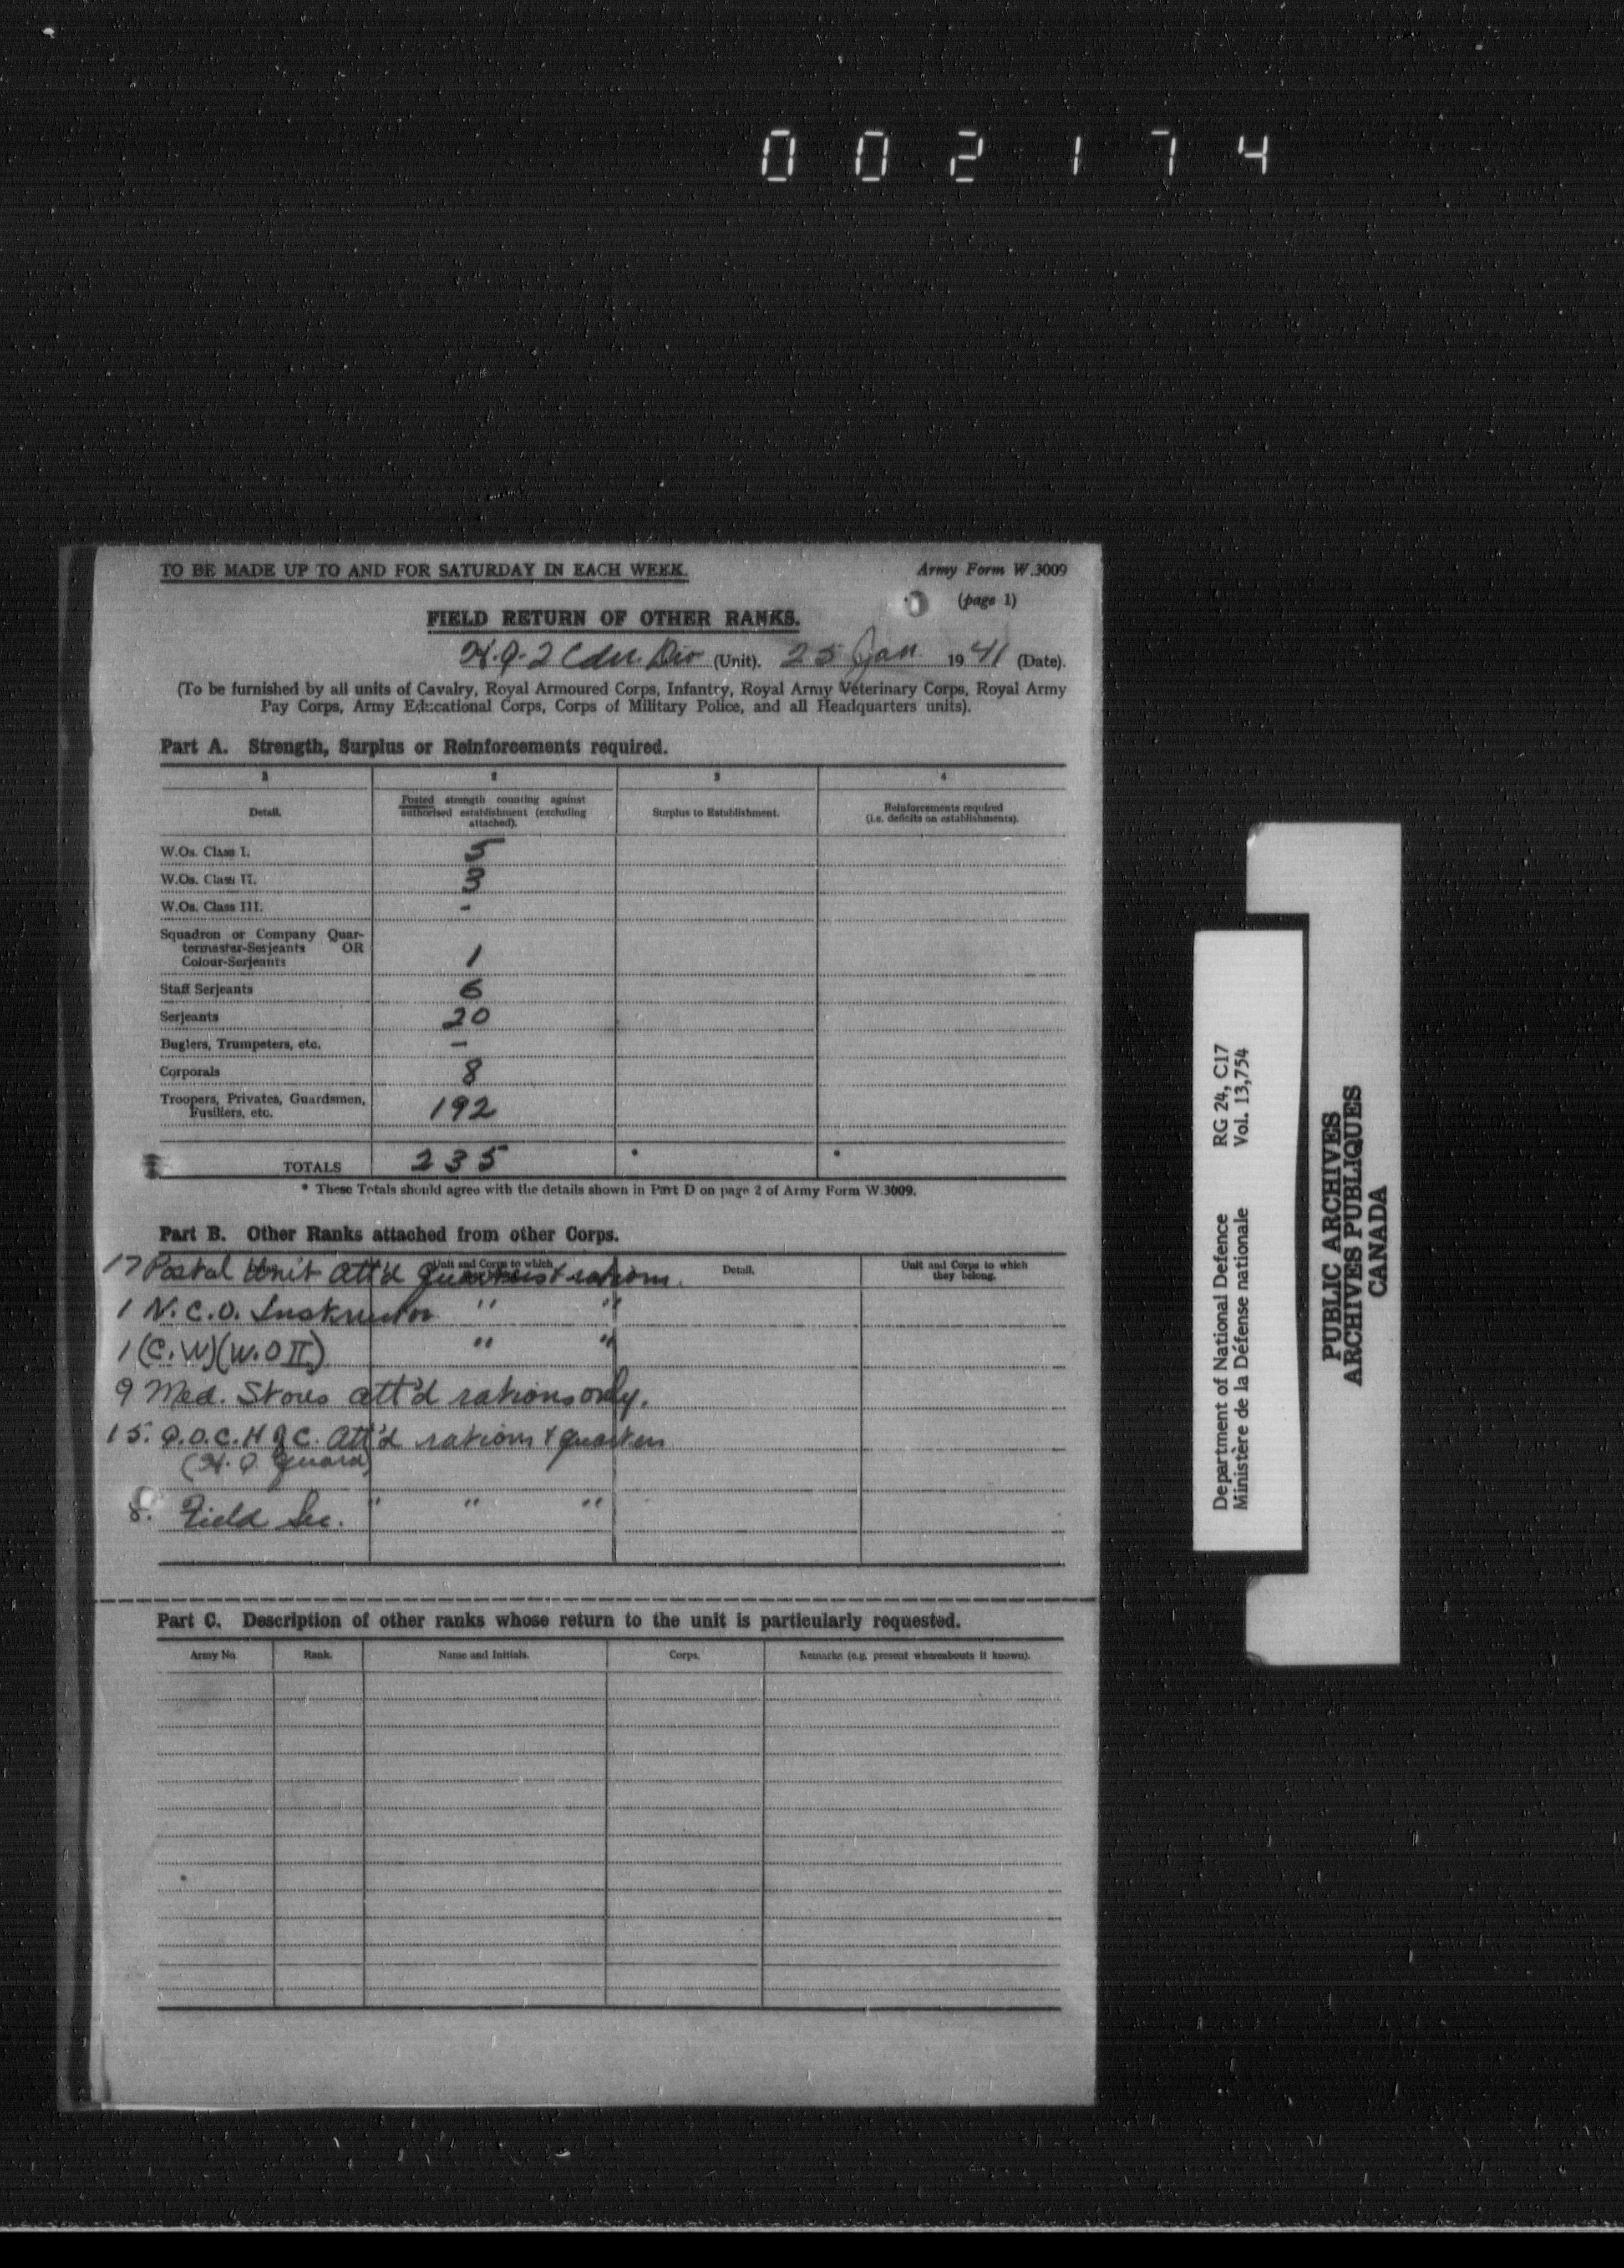 002174
TO BE MADE UP TO AND FOR SATURDAY IN EACH WEEK.
Army Form W.3009
(page 1)
FIELD RETURN OF OTHER RANKS.
H.Q. 2 Cdn. Div (Unit). 25 Jan 1941 (Date).
(To be furnished by all units of Cavalry, Royal Armoured Corps, Infantry, Royal Army Veterinary Corps, Royal Army
Pay Corps, Army Educational Corps, Corps of Military Police, and all Headquarters units).
Part A. Strength, Surplus or Reinforcements required.
1 2 3 4
Detail.
Posted strength counting against
authorised establishment (excluding
attached).
Surplus to Establishment.
Reinforcements required
(i.e. deficits on establishments).
W.Os. Class I. 5
W.Os. Class II. 3
W.Os. Class III. -
Squadron or Company Quar-
termaster-Serjeants OR
Colour-Serjeants 1
Staff Serjeants 6
Serjeants 20
Buglers, Trumpeters, etc. -
Corporals 8
Troopers, Privates, Guardsmen,
Fusiliers, etc. 192
TOTALS 235 * *
* These Totals should agree with the details shown in Part D on page 2 of Army Form W.3009.
Part B. Other Ranks attached from other Corps.
Unit and Corps to which
Detail.
Unit and Corps to which
they belong.
17 Postal Unit att'd quarters & rations.
1 N.C.O. Instructor " "
1 (C.W)(W.O II) " "
9 Med. Stores att'd rations only.
15. Q.O.C.H of C. Att'd rations & quarters
(H.Q. Guard)
8. Field Sec. " " "
Part C. Description of other ranks whose return to the unit is particularly requested.
Army No. Rank. Name and Initials. Corps. Remarks (e.g. present whereabouts if known).
Department of National Defence RG 24, C17
Ministère de la Défense nationale Vol. 13,754
PUBLIC ARCHIVES
ARCHIVES PUBLIQUES
CANADA